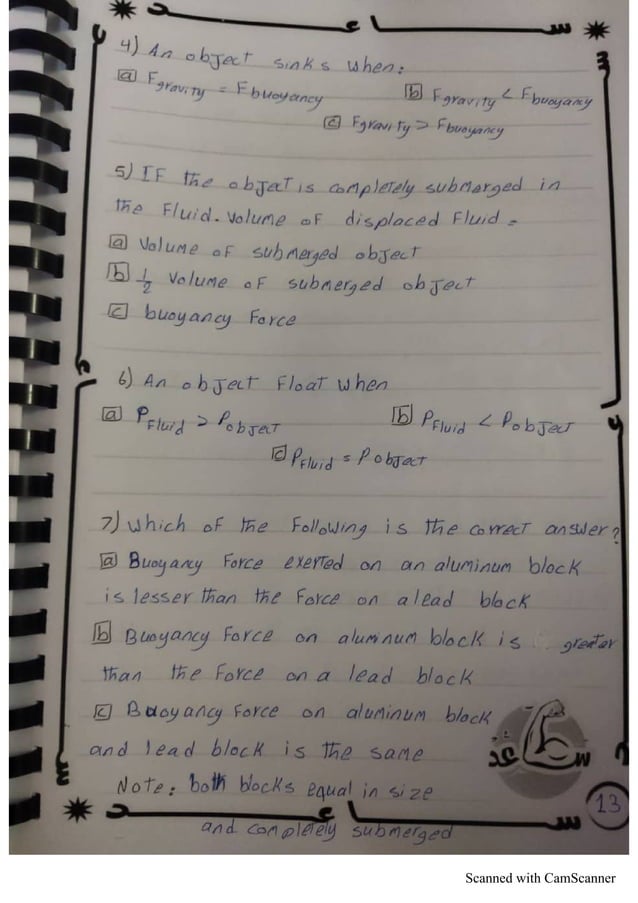 4) An object sinks when:
[a] Fgravity = Fbuoyancy [b] Fgravity < Fbuoyancy
[c] Fgravity > Fbuoyancy
5) IF the object is completely submerged in
the Fluid. Volume of displaced Fluid =
[a] Volume of submerged object
[b] 1/2 Volume of submerged object
[c] buoyancy Force
6) An object Float when
[a] PFluid > Pobject [b] PFluid < Pobject
[c] PFluid = Pobject
7) Which of the Following is the correct answer?
[a] Buoyancy Force exerted on an aluminum block
is lesser than the Force on a lead block
[b] Buoyancy Force on aluminum block is greater
than the Force on a lead block
[c] Buoyancy Force on aluminum block
and lead block is the same
Note: both blocks equal in size
and completely submerged
13
Scanned with CamScanner